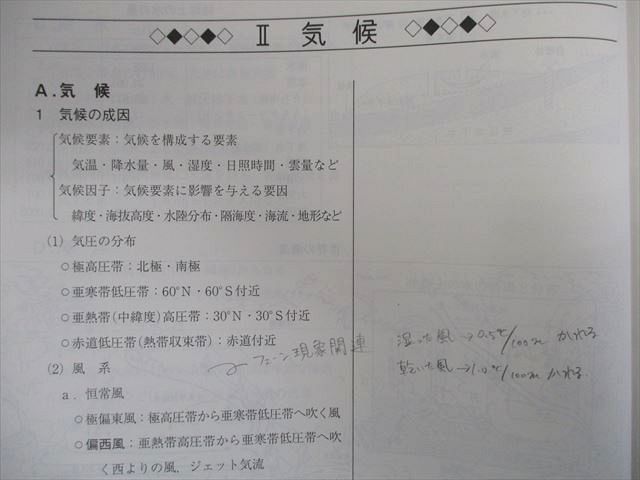 ◇◆◇◆◇ Ⅱ 気 候 ◇◆◇◆◇
A.気 候
1 気候の成因
気候要素：気候を構成する要素
気温・降水量・風・湿度・日照時間・雲量など
気候因子：気候要素に影響を与える要因
緯度・海抜高度・水陸分布・隔海度・海流・地形など
(1) 気圧の分布
○極高圧帯：北極・南極
○亜寒帯低圧帯：60°N・60°S付近
○亜熱帯(中緯度)高圧帯：30°N・30°S付近
○赤道低圧帯(熱帯収束帯)：赤道付近
フェーン現象関連
湿った風→0.5℃/100m かわる
乾いた風→1.0℃/100m かわる.
(2) 風 系
a. 恒常風
○極偏東風：極高圧帯から亜寒帯低圧帯へ吹く風
○偏西風：亜熱帯高圧帯から亜寒帯低圧帯へ吹
く西よりの風，ジェット気流